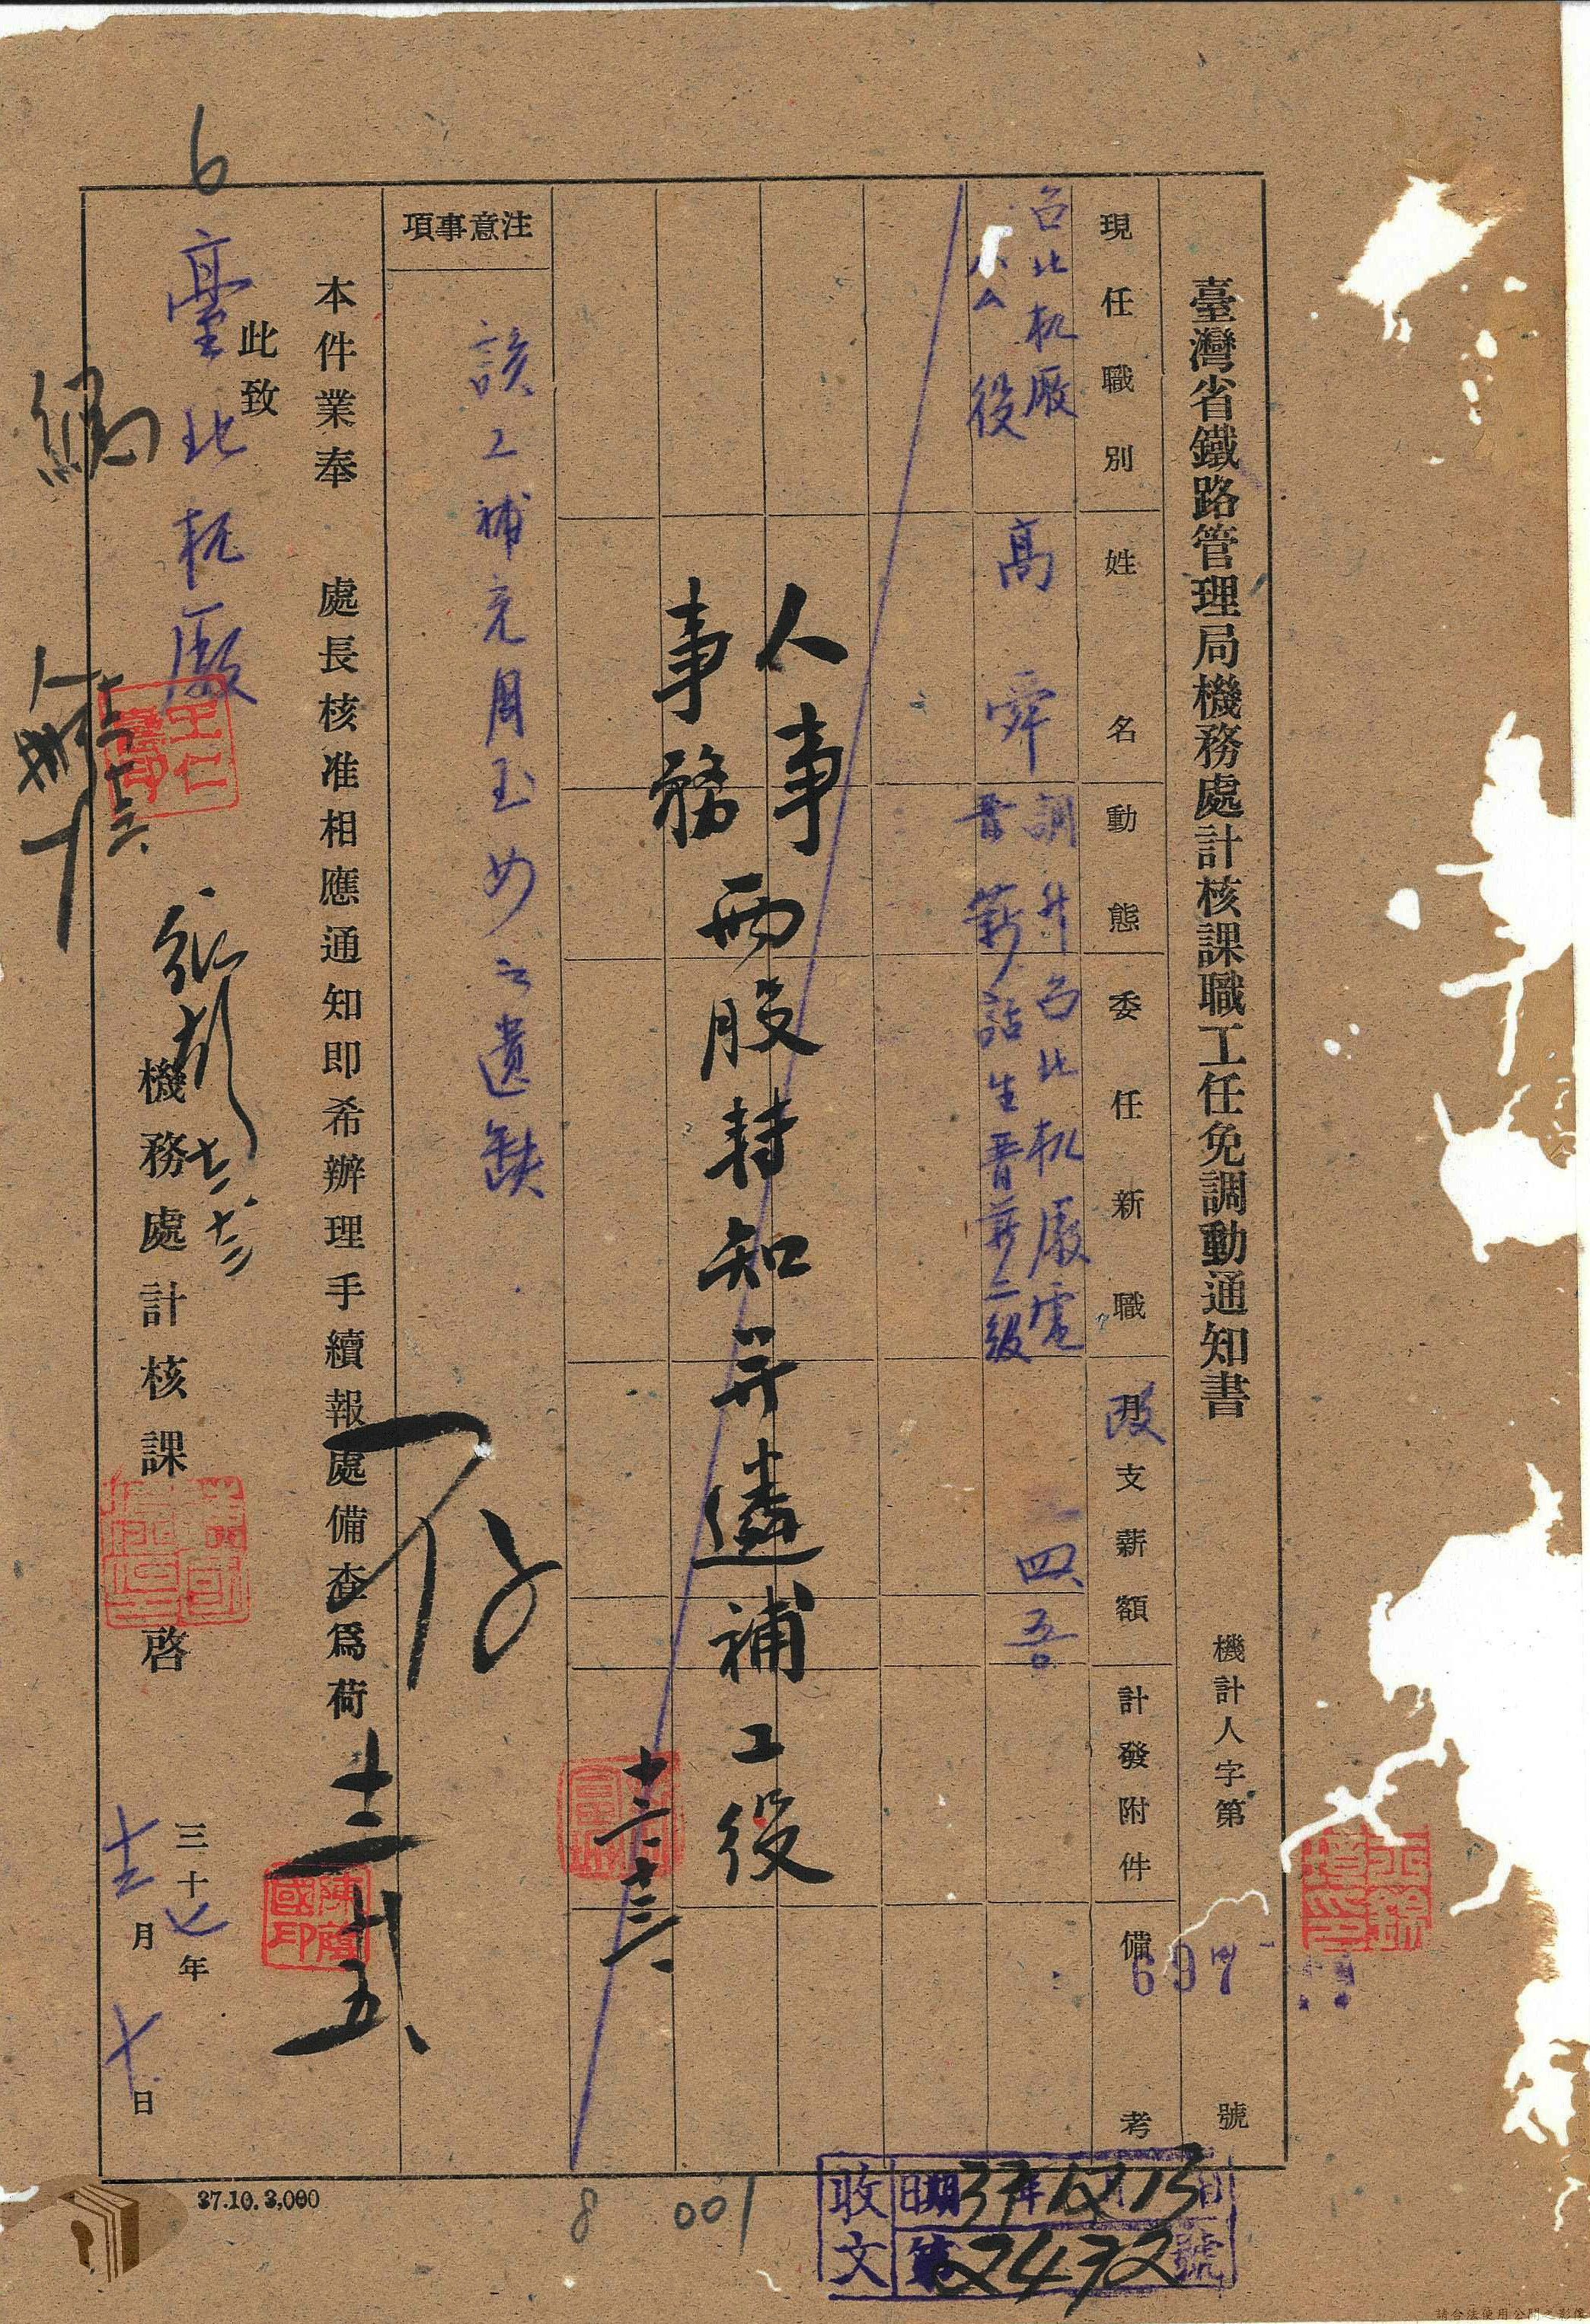 臺灣省鐵路管理局機務處計核課職工任免調動通知書
機計人字第 號
697
現任職別
姓名
動態
委任新職
月支薪額
計發附件
備考
台北机厰
役
高舜
調升台北机厰電
晋薪話生晋薪二級
改
四
人事
事務
兩股持知并遴補工役
十二、十三、
注意事項
該工補充周玉妙之遺缺
本件業奉 處長核准相應通知即希辦理手續報處備查爲荷
此致
臺北机厰
機務處計核課 啓
三十七年
十二月十日
存
十二 廿五
王仁
印
陳
國印
6
37.10.3,000
8
001
收文
日期 37年12月13日
第2472號
請合法使用公開之影像